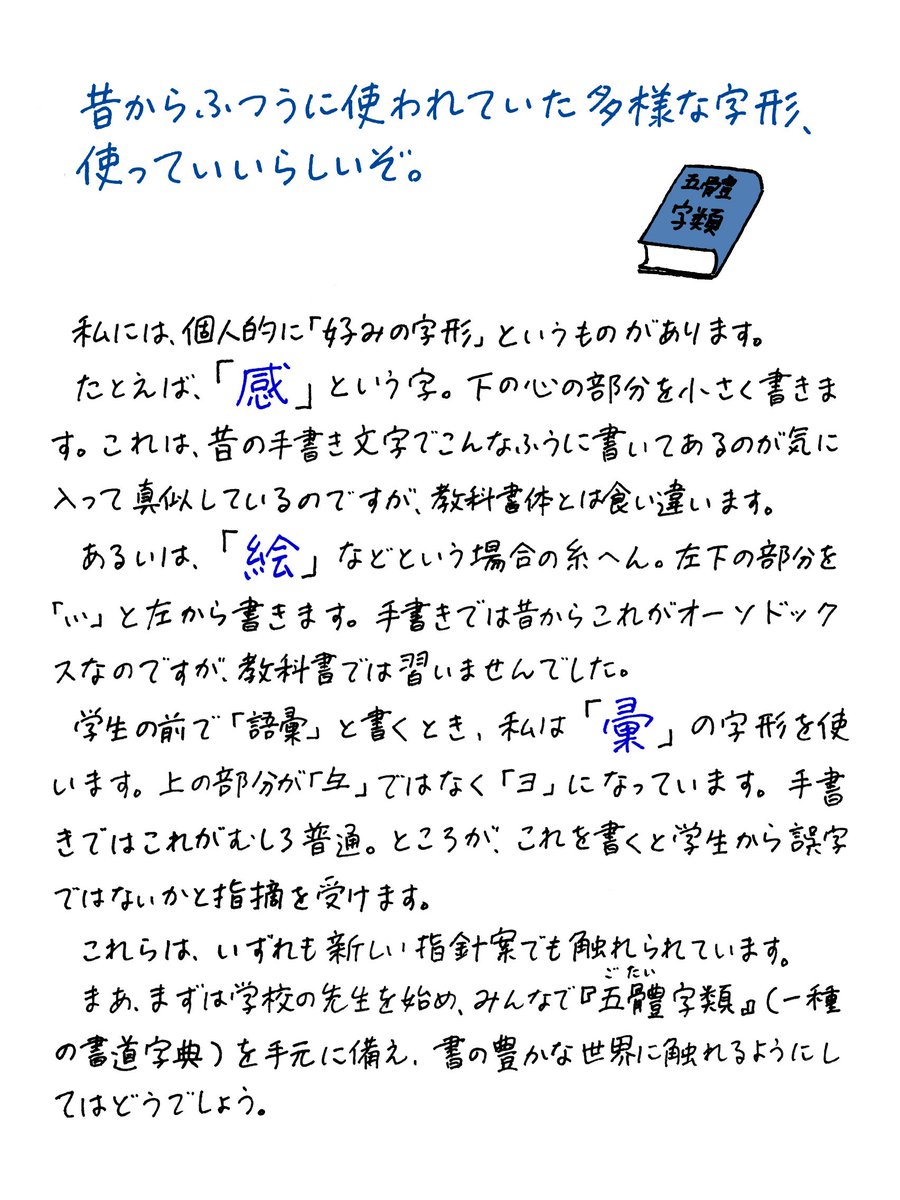 昔からふつうに使われていた多様な字形、
使っていいらしいぞ。
五體
字類
私には、個人的に「好みの字形」というものがあります。
たとえば、「感」という字。下の心の部分を小さく書きま
す。これは、昔の手書き文字でこんなふうに書いてあるのが気に
入って真似しているのですが、教科書体とは食い違います。
あるいは、「絵」などという場合の糸へん。左下の部分を
「灬」と左から書きます。手書きでは昔からこれがオーソドック
スなのですが、教科書では習いませんでした。
学生の前で「語彙」と書くとき、私は「彚」の字形を使
います。上の部分が「彑」ではなく「ヨ」になっています。手書
きではこれがむしろ普通。ところが、これを書くと学生から誤字
ではないかと指摘を受けます。
これらは、いずれも新しい指針案でも触れられています。
まあ、まずは学校の先生を始め、みんなで『五體字類』(一種
ごたい
の書道字典)を手元に備え、書の豊かな世界に触れるようにし
てはどうでしょう。